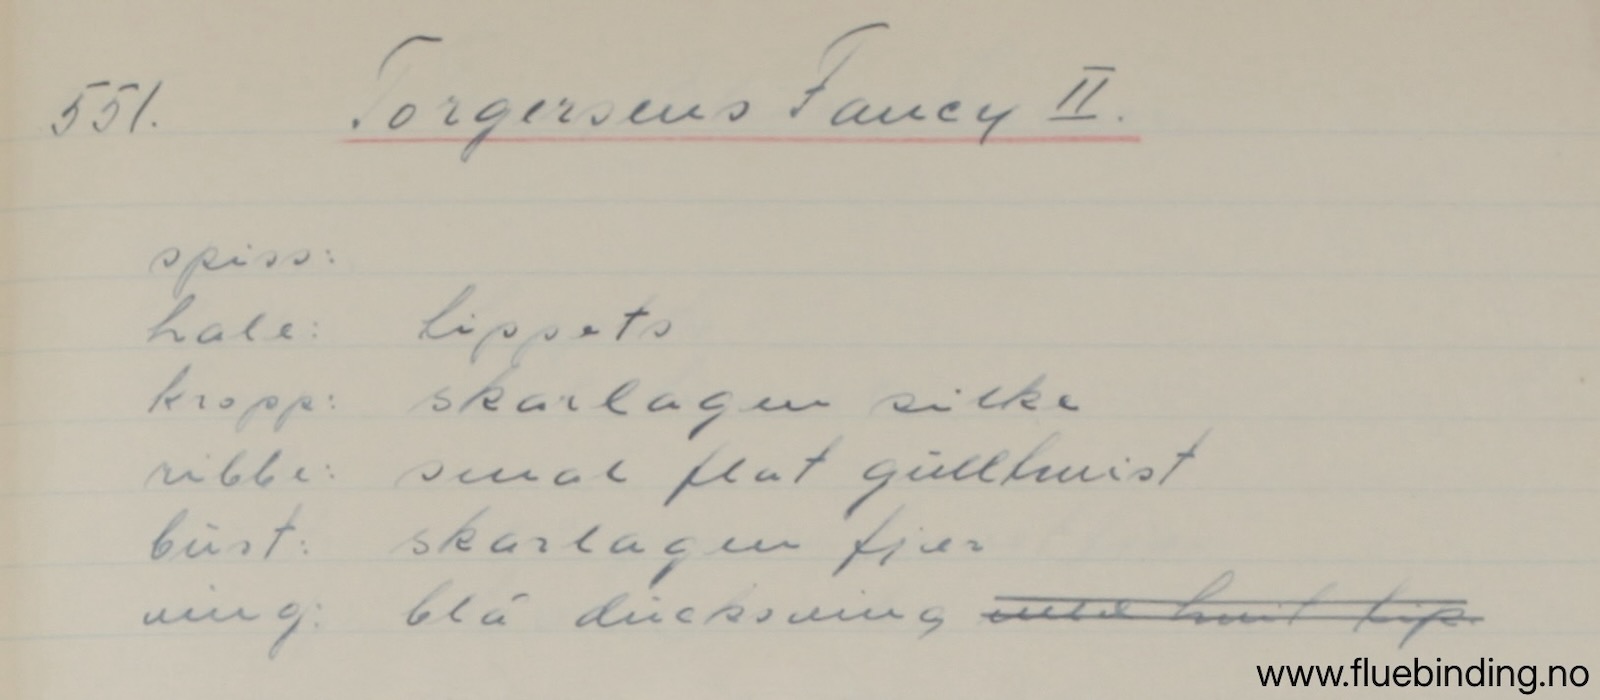 551. Torgersens Fancy II.
spiss:
hale: tippets
kropp: skarlagen silke
ribbe: smal flat gulltwist
bust: skarlagen fjær
ving: blå ducksving med hvit tip.
www.fluebinding.no